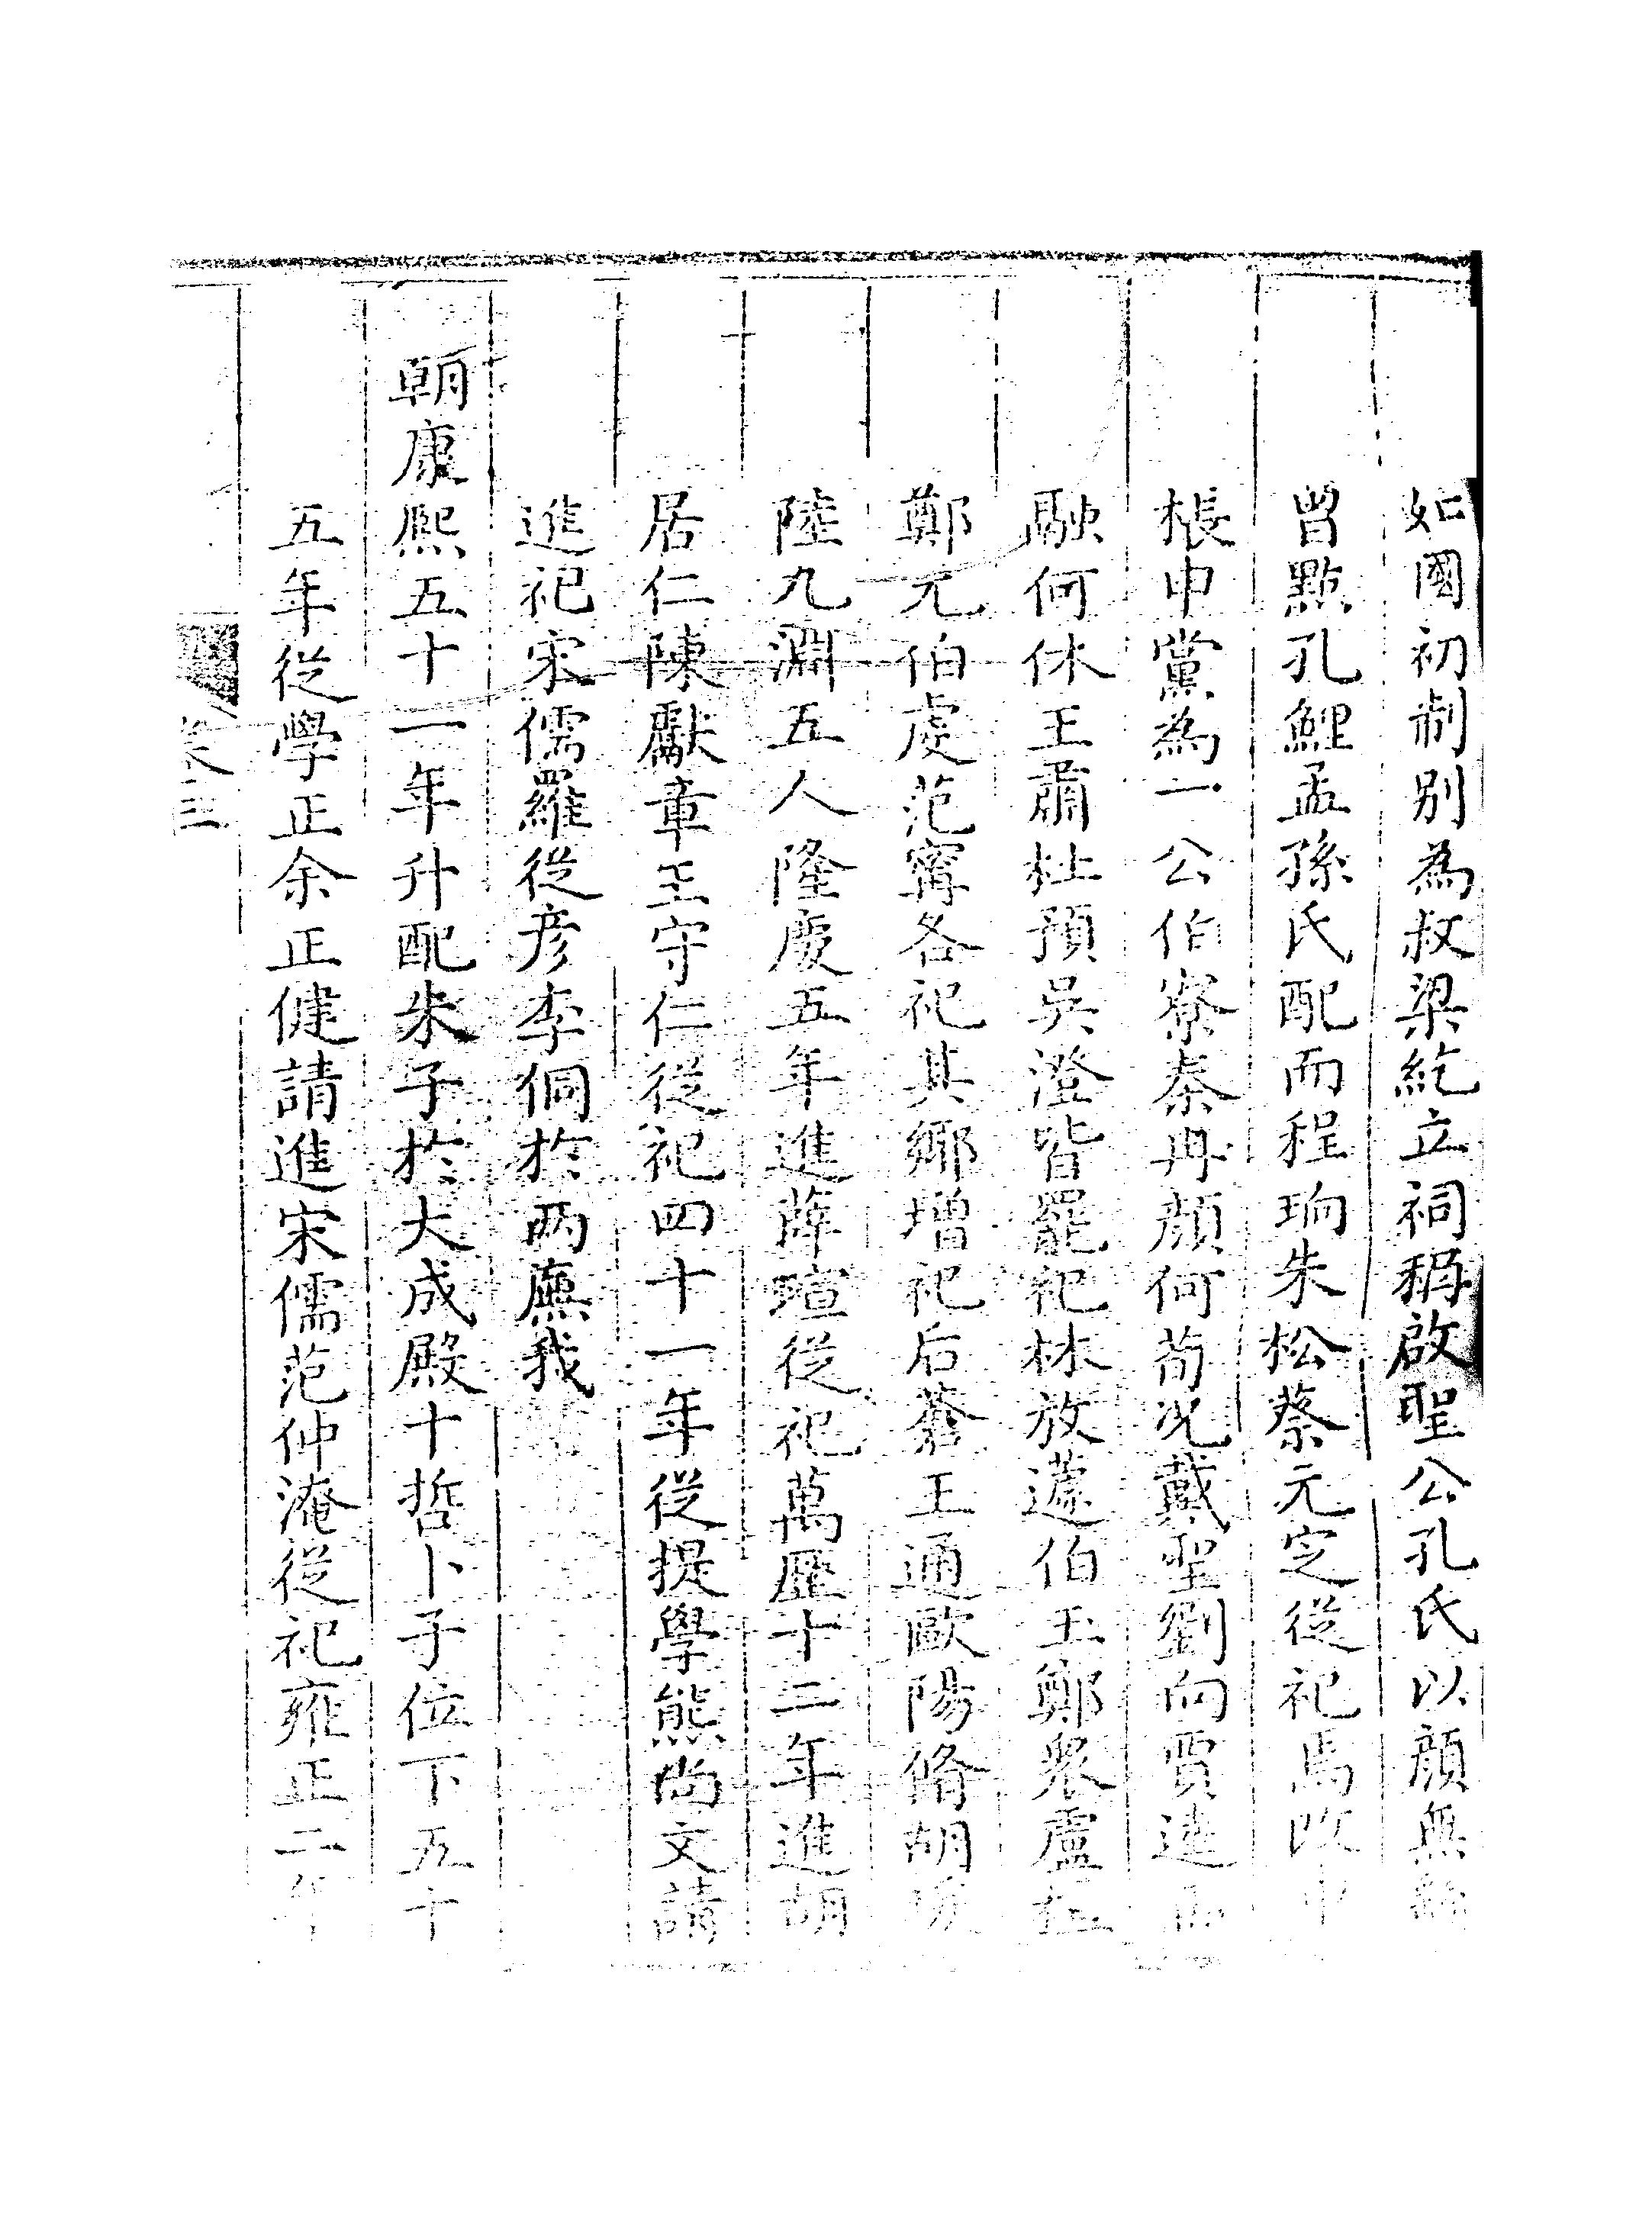 如國初制別為叔梁紇立祠稱啟聖公孔氏以顔無繇
曾點孔鯉孟孫氏配而程珦朱松蔡元定從祀焉改申
棖申黨為一公伯寮秦冉顔何荀况戴聖劉向賈逵馬
融何休王肅杜預吳澄皆罷祀林放蘧伯玉鄭衆盧植
鄭元伯虔范寗各祀其鄉增祀后蒼王通歐陽脩胡瑗
陸九淵五人隆慶五年進薛瑄從祀萬歷十二年進胡
居仁陳獻章王守仁從祀四十一年從提學熊尚文請
進祀宋儒羅從彦李侗於两廡我
朝康熙五十一年升配朱子於大成殿十哲卜子位下五十
五年從學正余正健請進宋儒范仲淹從祀雍正二年
卷三